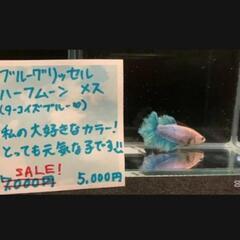 ブルーグリッセル
ハーフムーン メス
(ターコイズブルー♡)
私の大好きなカラー!
とっても元気な子です!!
SALE!
7,000円 5,000円